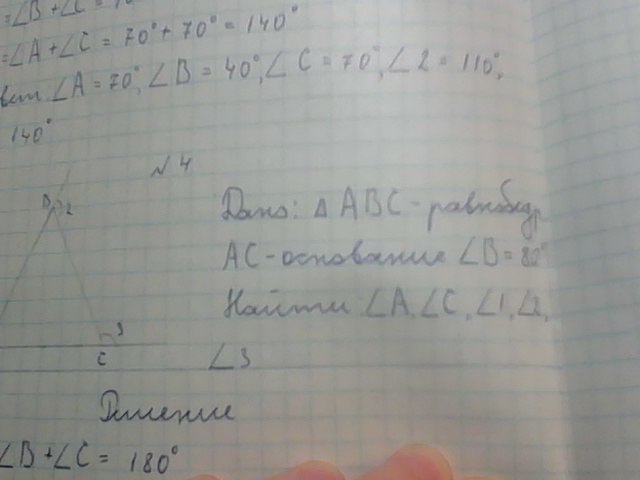 =∠B+∠C=
=∠A+∠C = 70°+70° = 140°
∠A=70°, ∠B = 40°, ∠C = 70°, ∠2 = 110°,
140°
№4
B 2
Дано: △ABC-равнобедр
AC-основание ∠B=80°
Найти ∠A, ∠C, ∠1, ∠2,
3
C ∠3
Решение
∠B+∠C= 180°